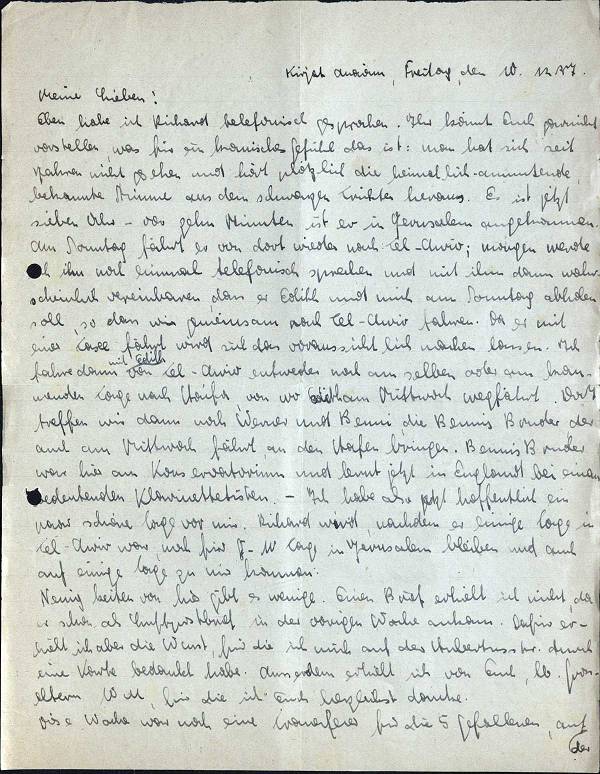 Kirjat Anavim, Freitag, den 10. 12. 37.
Meine Lieben!
Eben habe ich Richard telefonisch gesprochen. Ihr könnt Euch garnicht
vorstellen, was für ein komisches Gefühl das ist: man hat sich seit
Jahren nicht gesehen und hört plötzlich die heimatlich-anmutende
bekannte Stimme aus dem schwarzen Trichter heraus. Es ist jetzt
sieben Uhr - vor zehn Minuten ist er in Jerusalem angekommen.
Am Sonntag fährt er von dort wieder nach Tel-Awiw; morgen werde
ich ihn noch einmal telefonisch sprechen und mit ihm dann wahr-
scheinlich vereinbaren dass er Edith und mich am Sonntag abholen
soll, so dass wir gemeinsam nach Tel-Awiw fahren. Da er mit
einer Taxe fährt wird sich das voraussichtlich machen lassen. Ich
fahre dann mit Edith von Tel-Awiw entweder noch am selben oder am kom-
menden Tage nach Haifa von wo Edith am Mittwoch wegfährt. Dort
treffen wir dann noch Werner und Benni die Bennis Bruder der
auch am Mittwoch fährt an den Hafen bringen. Bennis Bruder
war hier am Konservatorium und lernt jetzt in England bei einem
bedeutenden Klarinettisten. - Ich habe also jetzt hoffentlich ein
paar schöne Tage vor mir. Richard wird, nachdem er einige Tage in
Tel-Awiw war, noch für 8-10 Tage in Jerusalem bleiben und auch
auf einige Tage zu mir kommen.
Neuigkeiten von hier gibt es wenige. Einen Brief erhielt ich nicht, da
er schon als Luftpostbrief in der vorigen Woche ankam. Dafür er-
hielt ich aber die Wurst, für die ich mich auf der Hubertusstr. durch
eine Karte bedankt habe. Ausserdem erhielt ich von Euch, lb. Gross-
eltern, die ich Euch herzlichst danke.
Diese Woche war noch eine Trauerfeier für die 5 Gefallenen, auf
der